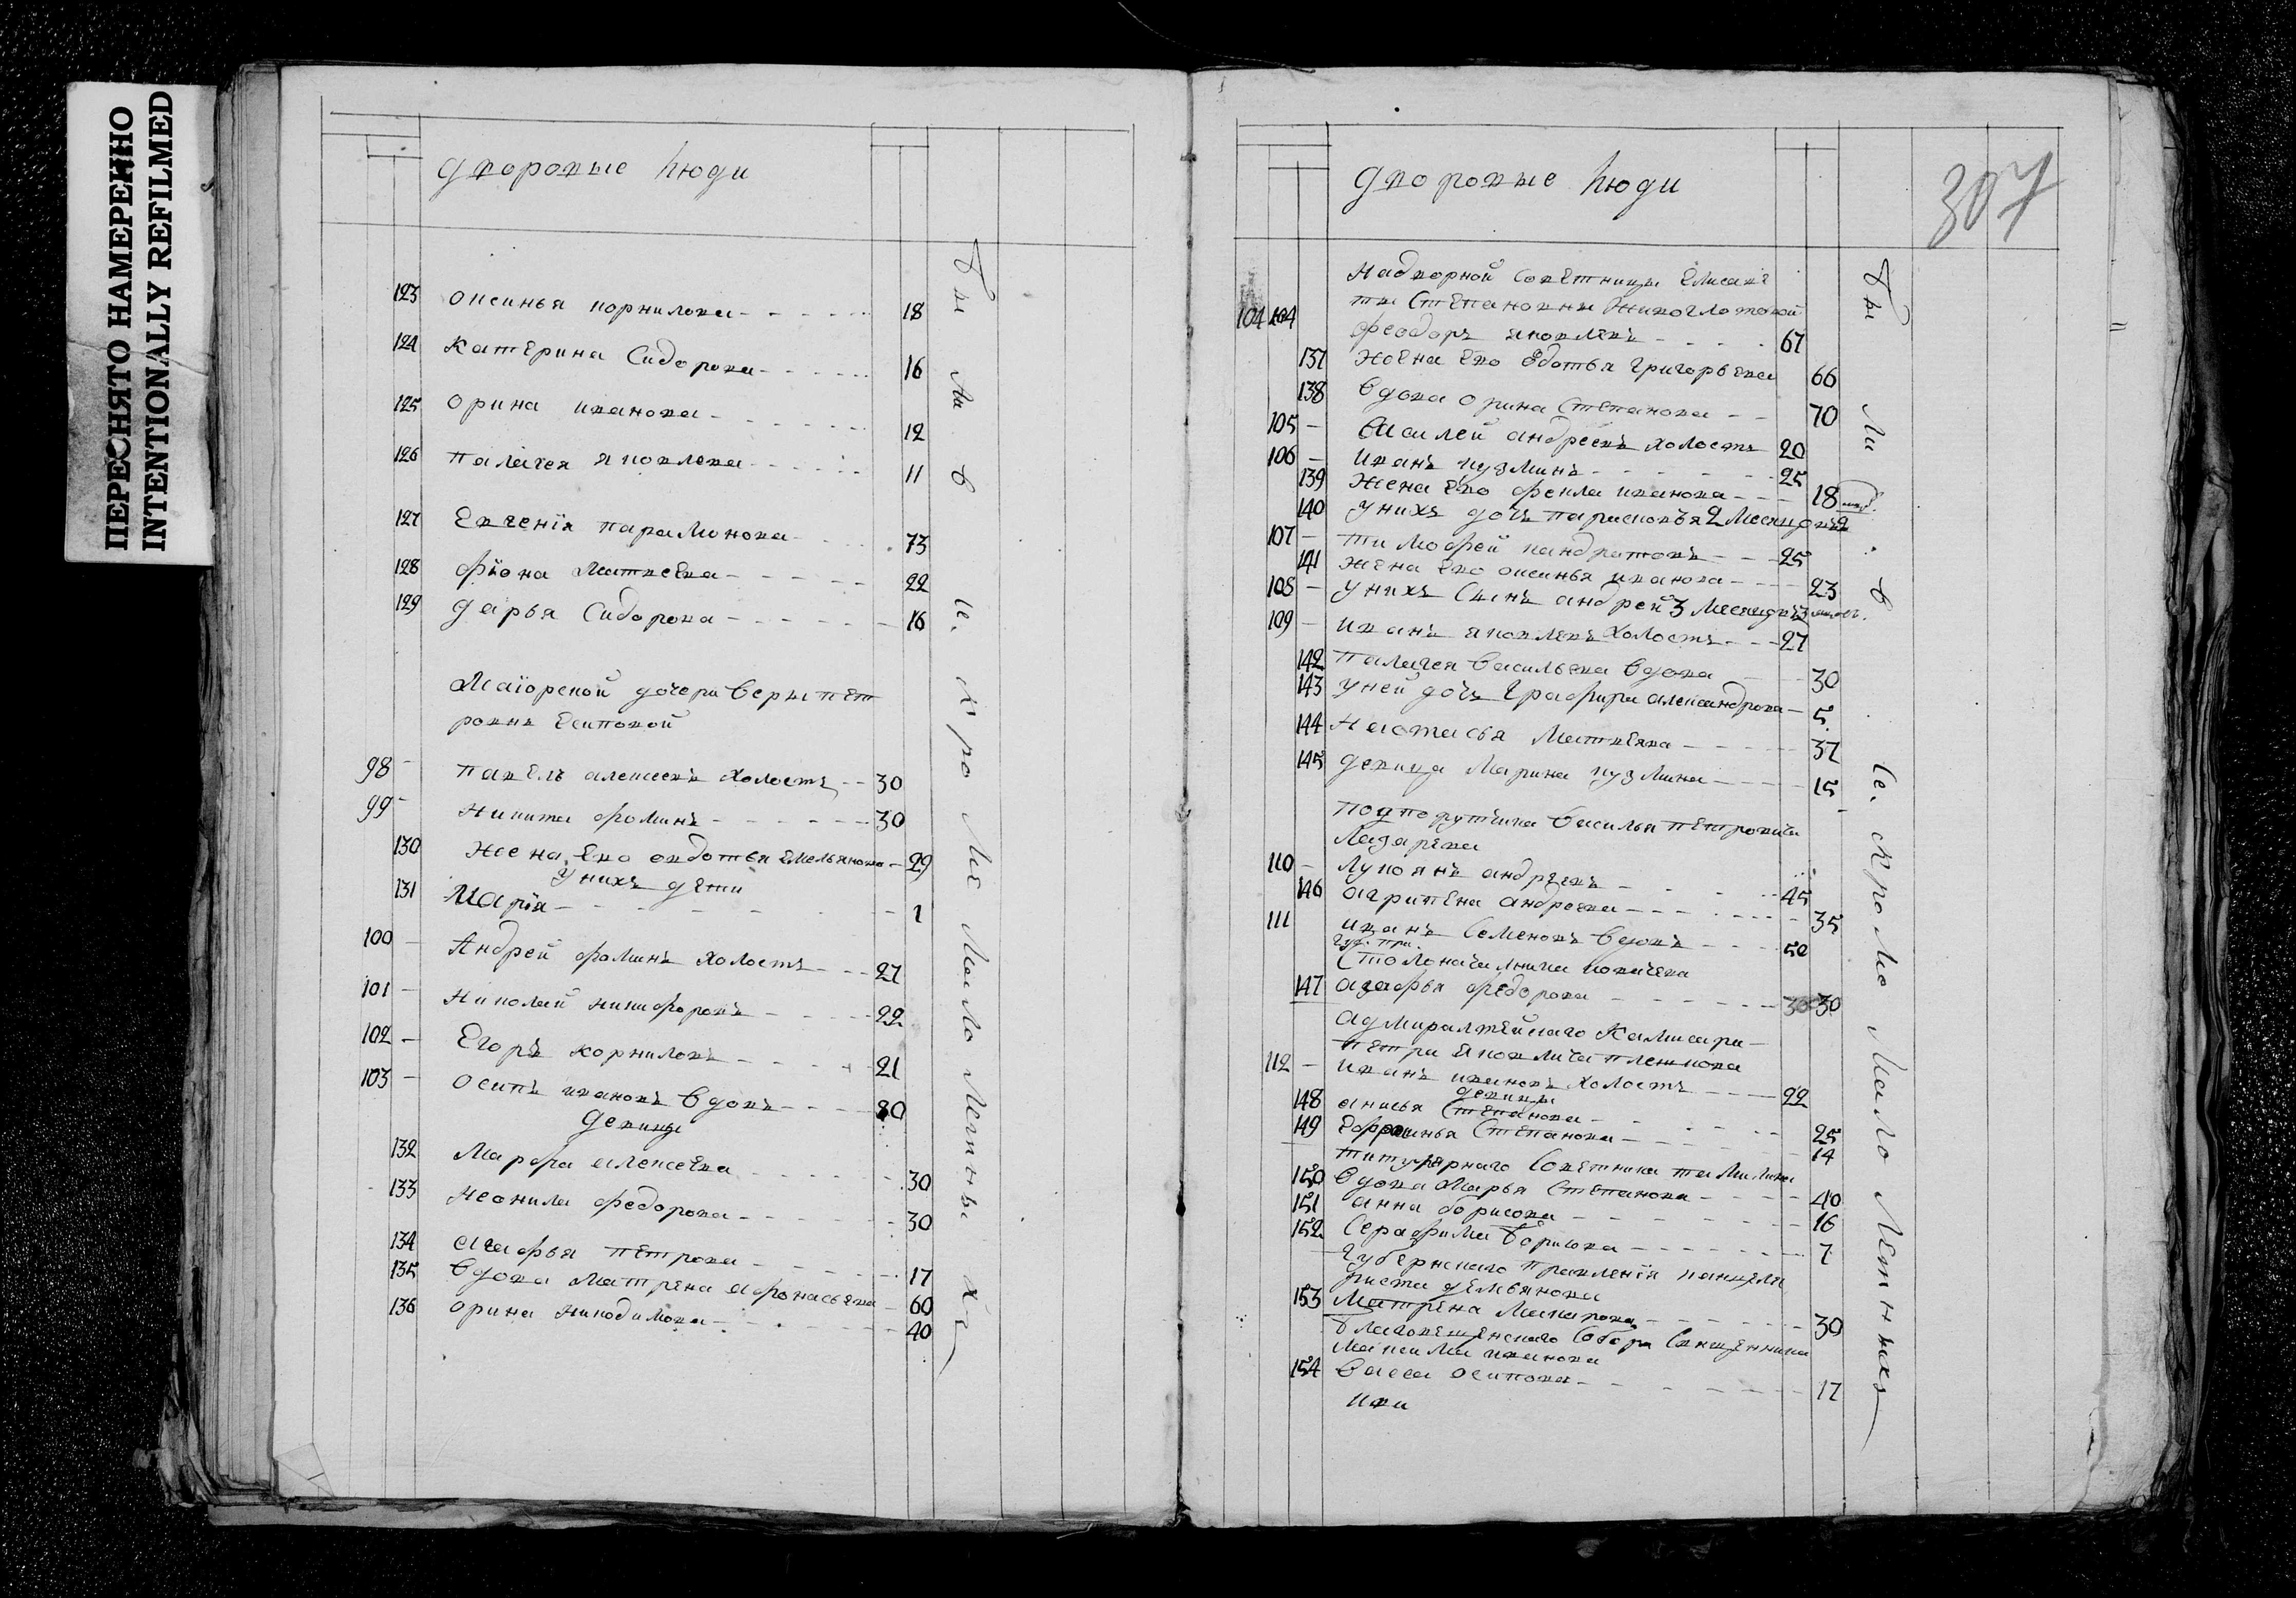 ПЕРЕСНЯТО НАМЕРЕННО
INTENTIONALLY REFILMED
дворовые люди
123 оксинья корнилова 18
124 Катерина Сидорова 16
125 орина иванова 12
126 палагея яковлева 11
127 Евгенія парамонова 73
128 фіона Матвеева 22
129 дарья Сидорова 16
Маіорской дочери Веры пет
ровны Есиповой
98 павелъ алексеевъ холостъ 30
99 Никита фоминъ 30
130 жена ево овдотья емельянова 29
у нихъ дети
131 Марія 1
100 Андрей фоминъ холостъ 27
101 Николай никифоровъ 22
102 Егоръ корниловъ 21
103 осипъ ивановъ вдовъ 80
девицы
132 Марфа алексеева 30
133 Неонила федорова 30
134 агафья петрова 17
135 вдова Матрена афонасьева 60
136 орина никодимова 40
были в се. Кроме малолетныхъ
дворовые люди
307
надворной советницы Елисаве
ты Степановны Живоглотовой
104 104 феодоръ яковлевъ 67
137 жена ево Едотья григорьева 66
138 вдова орина Степанова 70
105 Василей андреевъ холостъ 20
106 иванъ кузминъ 25
139 жена ево фекла иванова 18
140 у нихъ дочь парасковья 2 месяцовъ 2
107 тимофей кандратовъ 25
141 жена ево оксинья иванова 23
108 у нихъ сынъ андрей 3 месяцовъ 3
109 иванъ яковлевъ холостъ 27
142 палагея васильева вдова 30
143 у ней дочь Графира александрова 5
144 Настасья Матвеева 37
145 девица Марина кузмина 15
подпорутчика василья петровича
Лазарева
110 лукоянъ андреевъ 45
146 агрипена андреева 35
111 иванъ Семеновъ вдовъ 50
губ. пра.
Столоначалника
147 агафья федорова 30 30
адмиралтейскаго Камисара
петра яковлича плешкова
112 иванъ ивановъ холостъ 22
девицы
148 анисья Степанова 25
149 Ефросинья Степанова 14
титулярнаго Советника тамилина
150 вдова Марья Степанова 40
151 анна борисова 16
152 Серафима борисова 7
губернскаго правленія канцеля
риста демьянова
153 Матрена Макарова 30
благовещенскаго Собора Священника
максима иванова
154 васса осипова 17
ики
были в се. кроме малолетныхъ